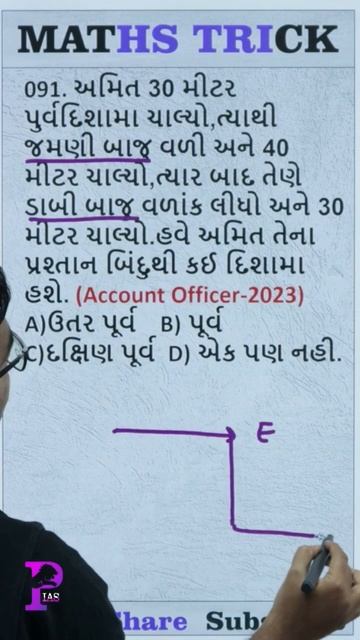 MATHS TRICK
091. અમિત 30 મીટર
પુર્વદિશામા ચાલ્યો,ત્યાથી
જમણી બાજુ વળી અને 40
મીટર ચાલ્યો,ત્યાર બાદ તેણે
ડાબી બાજુ વળાંક લીધો અને 30
મીટર ચાલ્યો.હવે અમિત તેના
પ્રશ્તાન બિંદુથી કઈ દિશામા
હશે. (Account Officer-2023)
A)ઉતર પૂર્વ B) પૂર્વ
C)દક્ષિણ પૂર્વ D) એક પણ નહી.
E
P IAS
Share